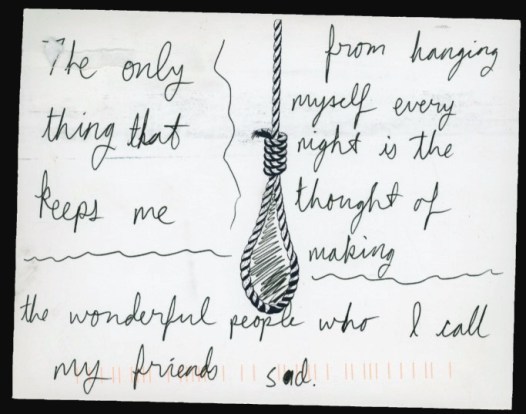 The only
thing that
keeps me
from hanging
myself every
night is the
thought of
making
the wonderful people who I call
my friends sad.